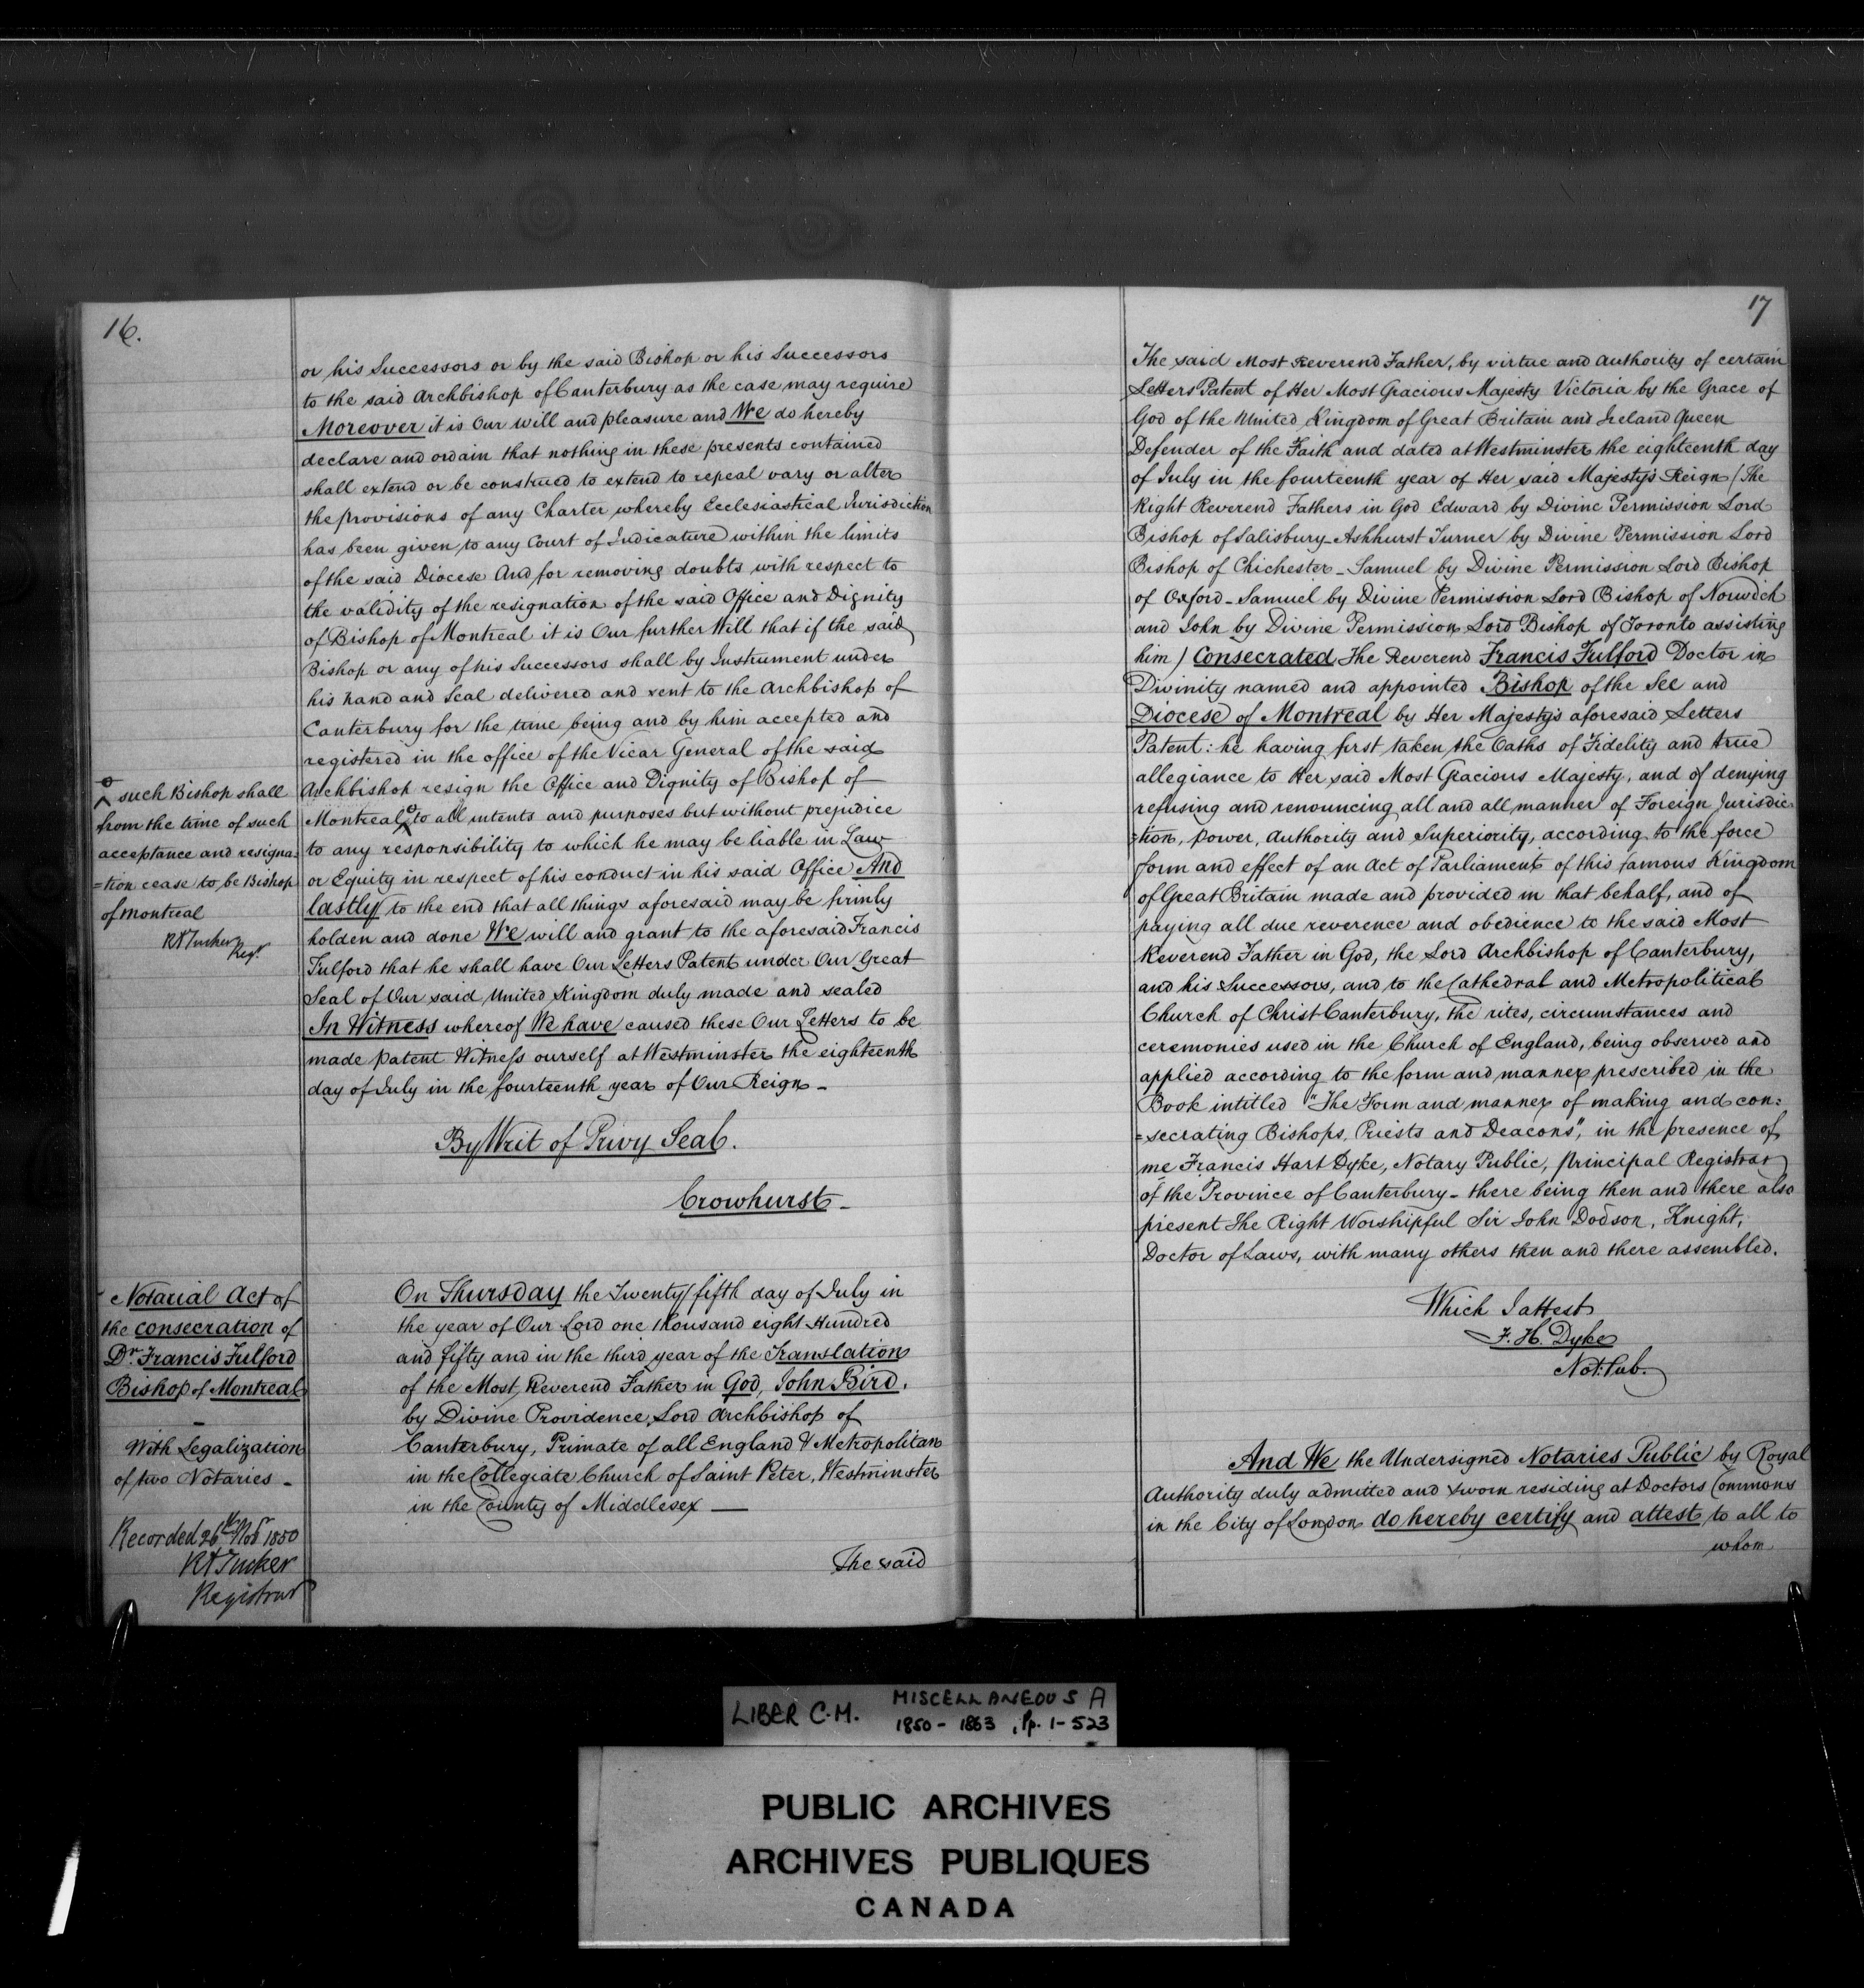 16.
or his Successors or by the said Bishop or his Successors
to the said Archbishop of Canterbury as the case may require
Moreover it is Our will and pleasure and We do hereby
declare and ordain that nothing in these presents contained
shall extend or be construed to extend to repeal vary or alter
the provisions of any Charter whereby Ecclesiastical Jurisdiction
has been given to any Court of Judicature within the limits
of the said Diocese And for removing doubts with respect to
the validity of the resignation of the said Office and Dignity
of Bishop of Montreal it is Our further Will that if the said
Bishop or any of his Successors shall by Instrument under
his hand and Seal delivered and sent to the Archbishop of
Canterbury for the time being and by him accepted and
registered in the office of the Vicar General of the said
Archbishop resign the Office and Dignity of Bishop of
Montreal to all intents and purposes but without prejudice
to any responsibility to which he may be liable in Law
or Equity in respect of his conduct in his said Office And
lastly to the end that all things aforesaid may be firmly
holden and done We will and grant to the aforesaid Francis
Fulford that he shall have Our Letters Patent under Our Great
Seal of Our said United Kingdom duly made and sealed
In Witness whereof We have caused these Our Letters to be
made patent Witness ourself at Westminster the eighteenth
day of July in the fourteenth year of Our Reign -
By Writ of Privy Seal.
Crowhurst -
such Bishop shall
from the time of such
acceptance and resigna=
=tion cease to be Bishop
of Montreal
RA Tucker
Regr.
Notarial Act of
the consecration of
Dr. Francis Fulford
Bishop of Montreal
-
With Legalization
of two Notaries -
Recorded 26th Novr 1850
RA Tucker
Registrar
On Thursday the Twenty fifth day of July in
the year of Our Lord one thousand eight Hundred
and fifty and in the third year of the Translation
of the Most Reverend Father in God, John Bird,
by Divine Providence Lord Archbishop of
Canterbury, Primate of all England & Metropolitan
in the Collegiate Church of Saint Peter, Westminster
in the County of Middlesex —
The said
17
The said Most Reverend Father, by virtue and Authority of certain
Letters Patent of Her Most Gracious Majesty Victoria by the Grace of
God of the United Kingdom of Great Britain and Ireland Queen
Defender of the Faith and dated at Westminster the eighteenth day
of July in the fourteenth year of Her said Majesty's Reign (The
Right Reverend Fathers in God Edward by Divine Permission Lord
Bishop of Salisbury - Ashhurst Turner by Divine Permission Lord
Bishop of Chichester - Samuel by Divine Permission Lord Bishop
of Oxford - Samuel by Divine Permission Lord Bishop of Norwich
and John by Divine Permission Lord Bishop of Toronto assisting
him) Consecrated The Reverend Francis Fulford Doctor in
Divinity named and appointed Bishop of the See and
Diocese of Montreal by Her Majesty's aforesaid Letters
Patent: he having first taken the Oaths of Fidelity and true
allegiance to Her said Most Gracious Majesty, and of denying
refusing and renouncing all and all manner of Foreign Jurisdic-
=tion, power, Authority and Superiority, according to the force
form and effect of an Act of Parliament of this famous Kingdom
of Great Britain made and provided in that behalf, and of
paying all due reverence and obedience to the said Most
Reverend Father in God, the Lord Archbishop of Canterbury,
and his Successors, and to the Cathedral and Metropolitical
Church of Christ Canterbury, the rites, circumstances and
ceremonies used in the Church of England, being observed and
applied according to the form and manner prescribed in the
Book intitled "The Form and manner of making and con:
=secrating Bishops, Priests and Deacons", in the presence of
me Francis Hart Dyke, Notary Public, Principal Registrar
of the Province of Canterbury - there being then and there also
present The Right Worshipful Sir John Dodson, Knight,
Doctor of Laws, with many others then and there assembled.
Which I attest
F. H. Dyke
Not: Pub.
And We the Undersigned Notaries Public by Royal
Authority duly admitted and sworn residing at Doctors Commons
in the City of London do hereby certify and attest to all to
whom
LIBER C.M. MISCELLANEOUS A
1850 - 1863, Pp. 1-523
PUBLIC ARCHIVES
ARCHIVES PUBLIQUES
CANADA